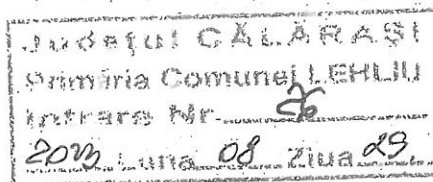 Județul CĂLĂRAȘI
Primăria Comunei LEHLIU
Intrare Nr. 26
Luna 08 Ziua 29